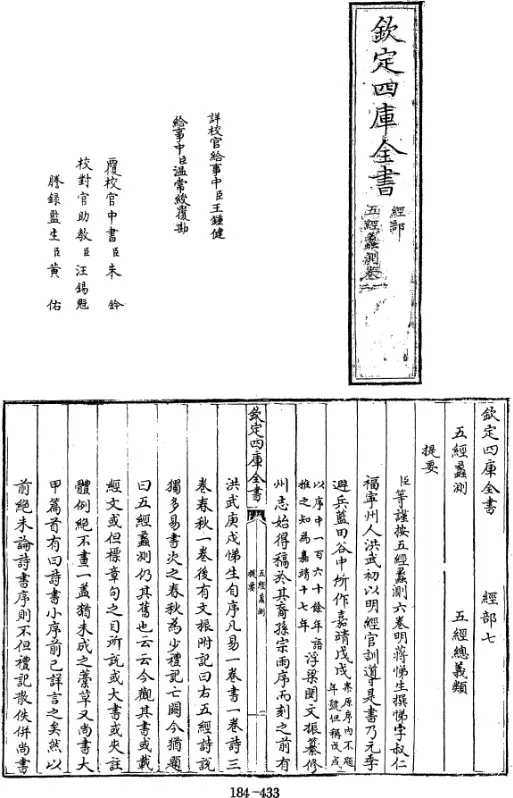 欽定四庫全書
經部
五經蠡測卷一
詳校官給事中臣王鍾健
給事中臣溫常綬覆勘
覆校官中書臣朱鈐
校對官助教臣汪錫魁
謄録監生臣黃佑
欽定四庫全書 經部七
五經蠡測 五經總義類
提要
臣等謹按五經蠡測六卷明蔣悌生撰悌字叔仁
福寧州人洪武初以明經官訓導是書乃元季
避兵藍田谷中所作嘉靖戊戌案原序内不題年號但稱戊戌
以序中一百六十餘年語推之知為嘉靖十七年浮梁閔文振纂修
州志始得稿於其裔孫宗雨序而刻之前有
欽定四庫全書
五經蠡測
提要
一
洪武庚戌悌生自序凡易一卷書一卷詩三
卷春秋一卷後有文振附記曰右五經詩說
獨多易書次之春秋為少禮記亡闕今猶題
曰五經蠡測仍其舊也云云今觀其書或載
經文或但標章句之目所說或大書或夾註
體例絕不畫一蓋猶未成之藁草又尚書大
甲篇首有曰詩書小序前已詳言之矣然以
前絕未論詩書序則不但禮記散佚併尚書
184-433